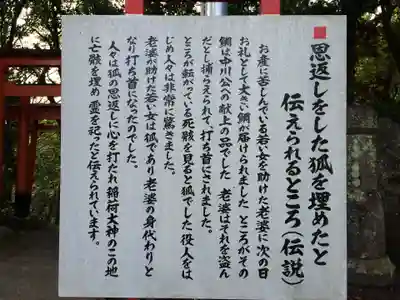 恩返しをした狐を埋めたと
伝えられるところ(伝説)
お産に苦しんでいる若い女を助けた老婆に次の日
お礼として大きい鯛が届けられました ところがその
鯛は中川公への献上の品でした 老婆はそれを盗ん
だとし捕らえられて、打ち首にされました。
ところが転がっている死骸を見ると狐でした 役人をは
じめ人々は非常に驚きました。
老婆が助けた若い女は狐であり老婆の身代わりと
なり打ち首になったのでした。
人々は狐の恩返しに心を打たれ稲荷大神のこの地
に亡骸を埋め 霊を祀ったと伝えられています。